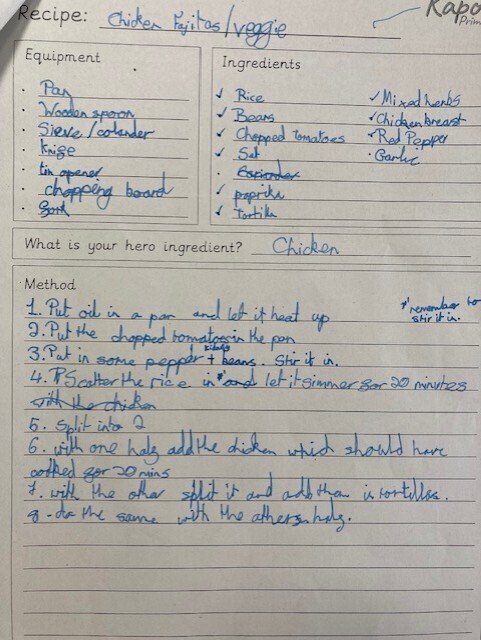 Recipe: Chicken Fajitas/veggie
Kapo
Prim
Equipment
Pan
Wooden spoon
Sieve/colander
knife
tin opener
chopping board
fork
Ingredients
Rice
Beans
Chopped tomatoes
Salt
Coriander
paprika
Tortilla
Mixed herbs
Chicken breast
Red Pepper
Garlic
What is your hero ingredient? Chicken
Method
*remember to
stir it in.
1. Put oil in a pan and let it heat up
2. Put the chopped tomatoes in the pan
3. Put in some pepper + kidney beans. Stir it in.
4. Scatter the rice in* and let it simmer for 20 minutes
with the chicken
5. Split into 2
6. with one half add the chicken which should have
cooked for 20 mins
7. with the other split it and add them in tortillas.
8. do the same with the other half.